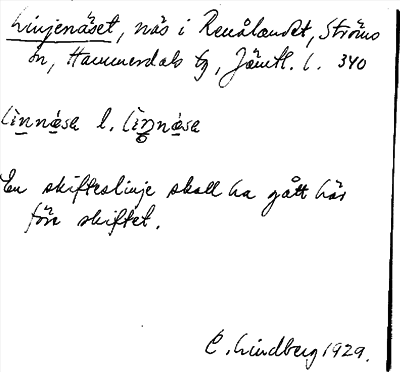 Linjenäset, näs i Renålandet, Ströms
sn, Hammerdals tg, Jämtl. l. 340
lìnnǽsa l. lìŋnǽsa
En skifteslinje skall ha gått här
före skiftet.
C. Lindberg 1929.